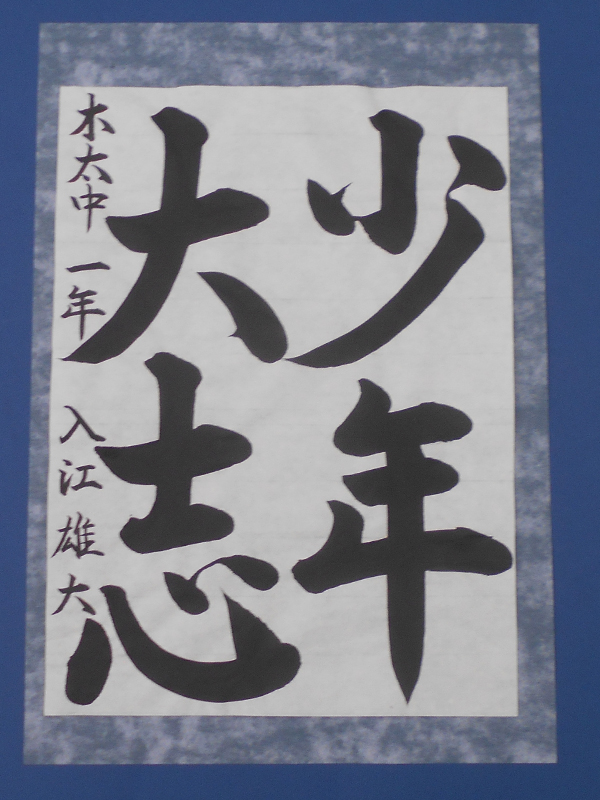 少年
大志
木太中 一年 入江雄大